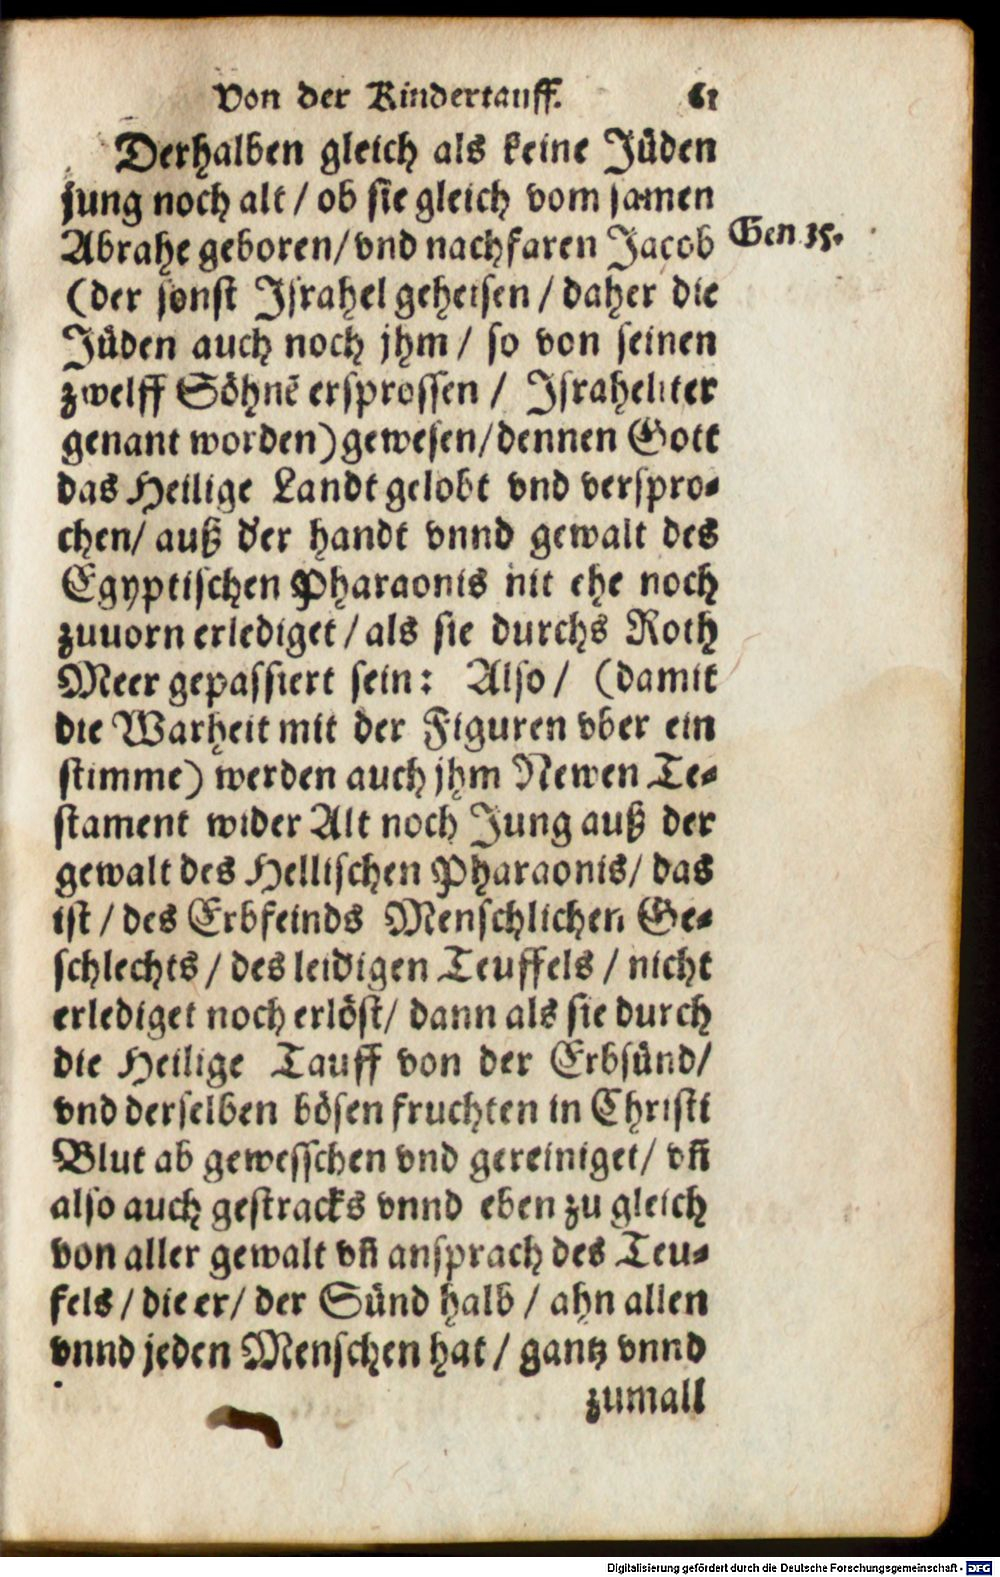 Von der Kindertauff. 61
Derhalben gleich als keine Jüden
jung noch alt / ob sie gleich vom samen
Abrahe geboren/ vnd nachfaren Jacob
Gen. 35.
(der sonst Israhel geheisen / daher die
Jüden auch noch jhm / so von seinen
zwelff Söhnē ersprossen / Israheliter
genant worden) gewesen/ dennen Gott
das Heilige Landt gelobt vnd verspro-
chen/ auß der handt vnnd gewalt des
Egyptischen Pharaonis nit ehe noch
zuuorn erlediget / als sie durchs Roth
Meer gepassiert sein: Also / (damit
die Warheit mit der Figuren vber ein
stimme) werden auch jhm Newen Te-
stament wider Alt noch Jung auß der
gewalt des Hellischen Pharaonis/ das
ist / des Erbfeinds Menschlichen Ge-
schlechts / des leidigen Teuffels / nicht
erlediget noch erlöst/ dann als sie durch
die Heilige Tauff von der Erbsünd/
vnd derselben bösen fruchten in Christi
Blut ab gewesschen vnd gereiniget/ vñ
also auch gestracks vnnd eben zu gleich
von aller gewalt vñ ansprach des Teu-
fels / die er/ der Sünd halb / ahn allen
vnnd jeden Menschen hat / gantz vnnd
zumall
Digitalisierung gefördert durch die Deutsche Forschungsgemeinschaft - DFG